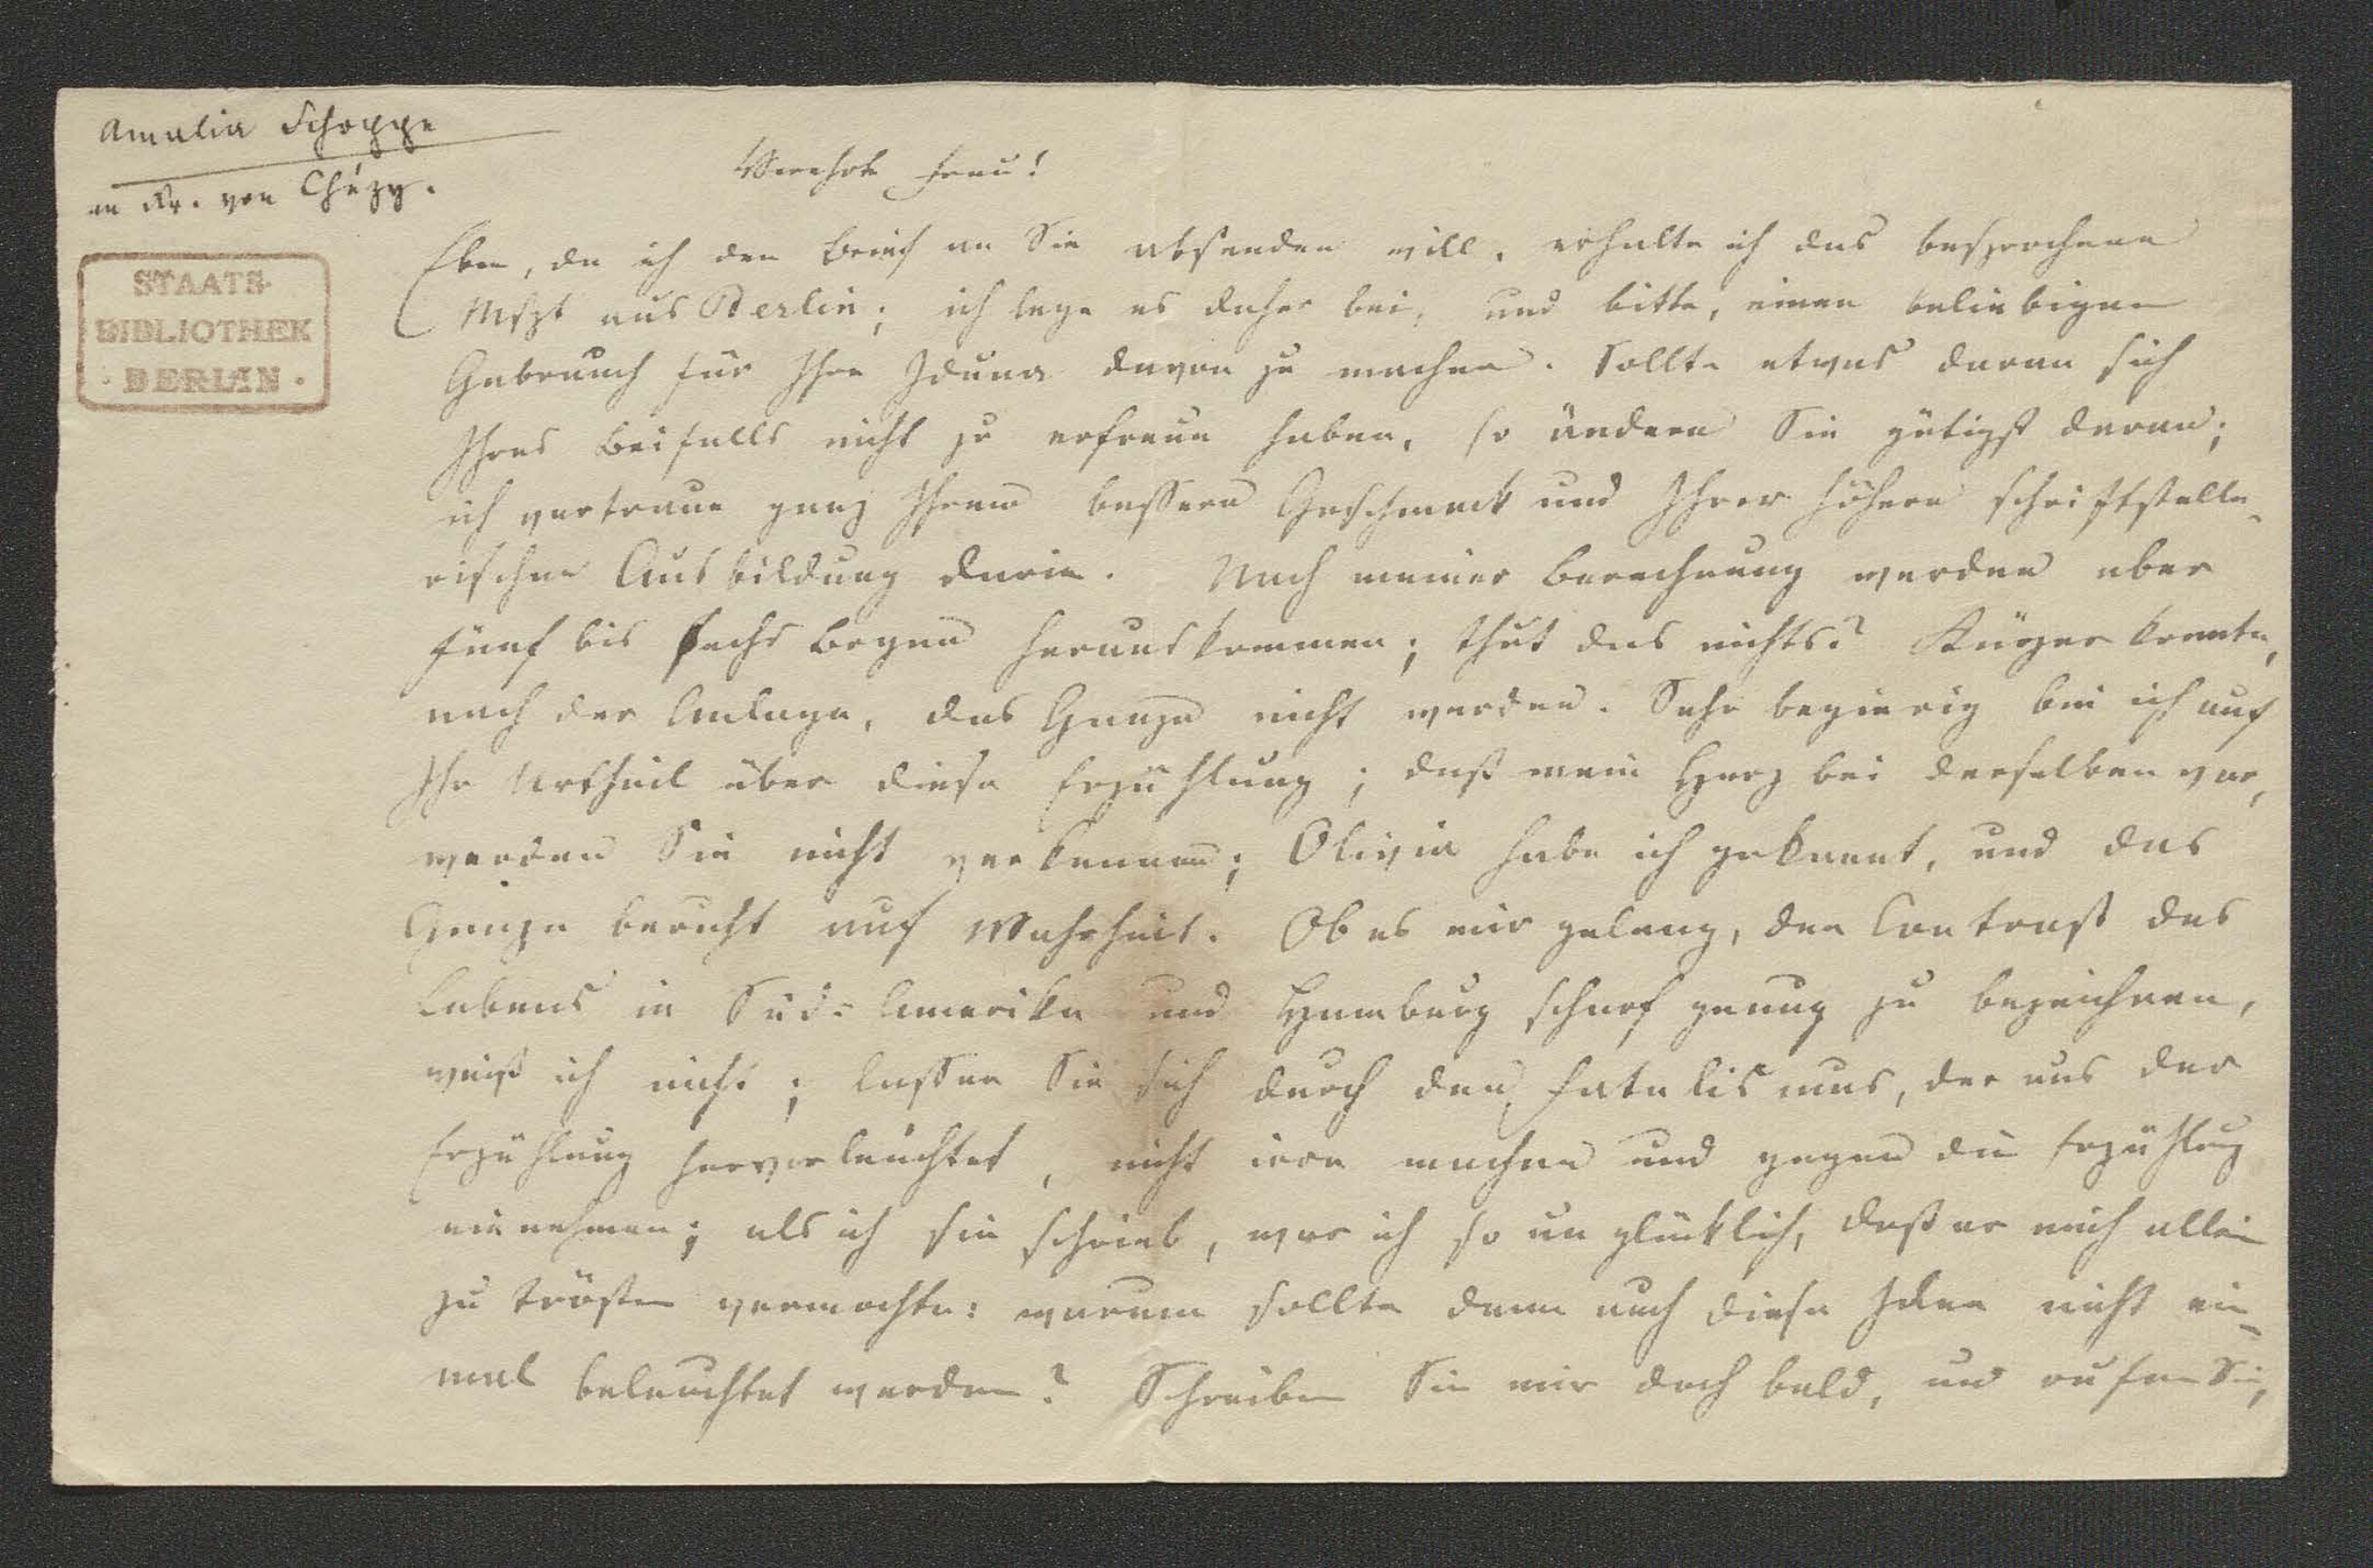 Amalia Schoppe
an Fr. von Chézy.
STAATS-
BIBLIOTHEK
· BERLIN ·
Verehrte Frau!
Eben, da ich den Brief an Sie absenden will, erhalte ich das besprochene
Mspt aus Berlin; ich lege es daher bei, und bitte, einen beliebigen
Gebrauch für Ihre Iduna davon zu machen. Sollte etwas daran sich
Ihres Beifalls nicht zu erfreun haben, so ändern Sie gütigst daran;
ich vertraue ganz Ihrem bessern Geschmack und Ihrer höhern schriftstelle-
rischen Ausbildung darin. Nach meiner Berechnung werden aber
fünf bis sechs Bogen herauskommen; thut das nichts? Kürzer konnte,
nach der Anlage, das Ganze nicht werden. Sehr begierig bin ich auf
Ihr Urtheil über diese Erzählung; daß mein Herz bei derselben war,
werden Sie nicht verkennen; Olivia habe ich gekannt, und das
Ganze beruht auf Wahrheit. Ob es mir gelang, den Contrast des
Lebens in Süd-Amerika und Hamburg scharf genug zu bezeichnen,
weiß ich nicht; lassen Sie sich durch den Fatalismus, der aus der
Erzählung hervorleuchtet, nicht irre machen und gegen die Erzählug
einnehmen; als ich sie schrieb, war ich so unglücklich, daß er mich allein
zu trösten vermochte: warum sollte denn auch diese Idee nicht ein-
mal beleuchtet werden? Schreiben Sie mir doch bald, und rufen Sie,